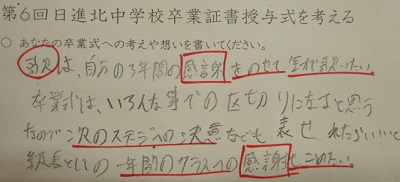 第6回日進北中学校卒業証書授与式を考える
○ あなたの卒業式への考えや想いを書いてください。
歌は、自分の3年間の感謝をのせて全力で歌いたい。
卒業式は、いろんな事での区切りになると思う
なので次のステージへの決意なども表せれたらいいと
級長としての一年間のクラスへの感謝をこめたい。